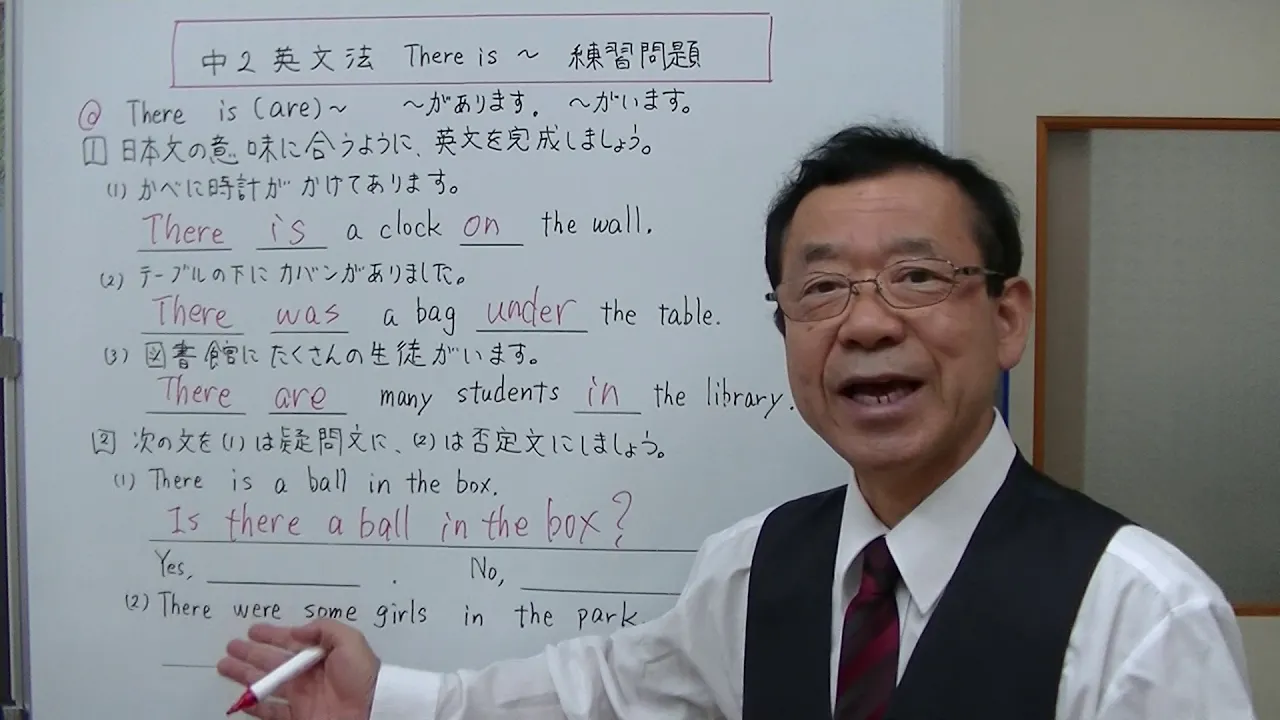 中2英文法 There is ～ 練習問題
◎ There is (are)～ ～があります. ～がいます。
1 日本文の意味に合うように、英文を完成しましょう。
(1) かべに時計が かけてあります。
There is a clock on the wall.
(2) テーブルの下にカバンがありました。
There was a bag under the table.
(3) 図書館にたくさんの生徒がいます。
There are many students in the library.
2 次の文を(1)は疑問文に、(2)は否定文にしましょう。
(1) There is a ball in the box.
Is there a ball in the box?
Yes, ______ . No, ______
(2) There were some girls in the park.